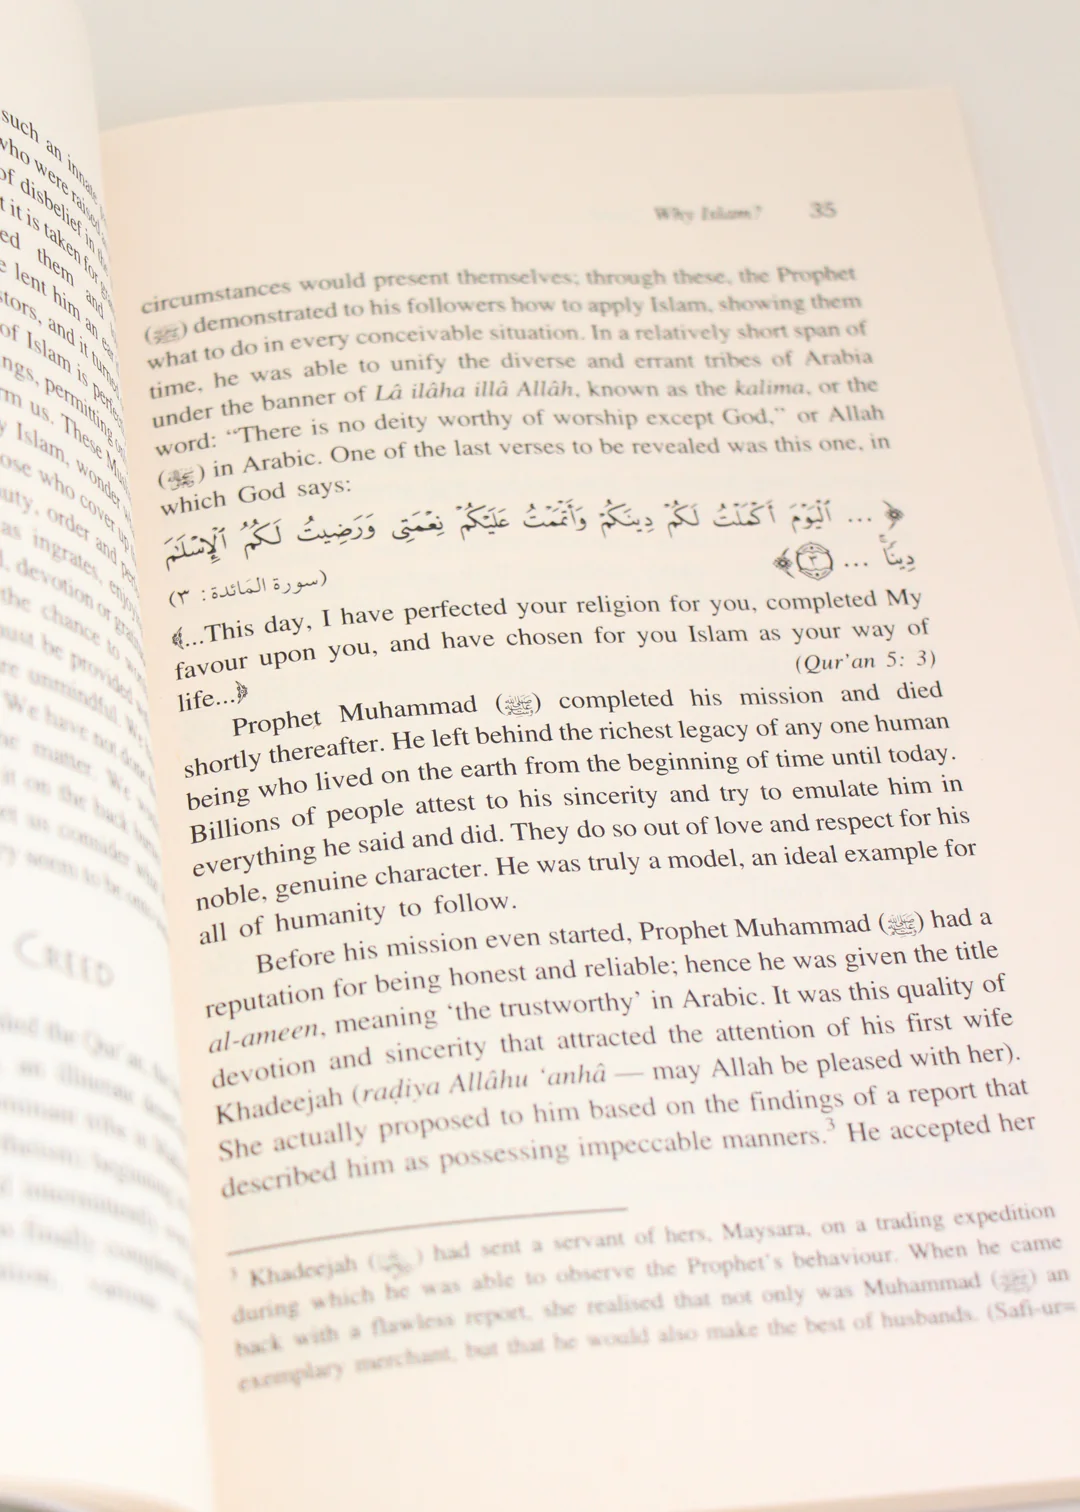 such an innate
who were raised
of disbelief in the
t it is taken for
ed them and
e lent him an ear
stors, and it turned
of Islam is perfect
ngs, permitting
rm us. These
y Islam, wonder
ose who cover up
uty, order and
as ingrates,
, devotion or
the chance to
ust be provided
re unmindful. We
We have not done
ne matter. We
it on the back
et us consider
ry seem to be
CREED
Why Islam? 35
circumstances would present themselves; through these, the Prophet
(ﷺ) demonstrated to his followers how to apply Islam, showing them
what to do in every conceivable situation. In a relatively short span of
time, he was able to unify the diverse and errant tribes of Arabia
under the banner of Lâ ilâha illâ Allâh, known as the kalima, or the
word: “There is no deity worthy of worship except God,” or Allah
() in Arabic. One of the last verses to be revealed was this one, in
which God says:
﴿ ... ٱلْيَوْمَ أَكْمَلْتُ لَكُمْ دِينَكُمْ وَأَتْمَمْتُ عَلَيْكُمْ نِعْمَتِى وَرَضِيتُ لَكُمُ ٱلْإِسْلَٰمَ
دِينًا ... ٣﴾
(سورة المَائدة: ٣)
﴾...This day, I have perfected your religion for you, completed My
favour upon you, and have chosen for you Islam as your way of
life...﴿ (Qur’an 5: 3)
Prophet Muhammad (ﷺ) completed his mission and died
shortly thereafter. He left behind the richest legacy of any one human
being who lived on the earth from the beginning of time until today.
Billions of people attest to his sincerity and try to emulate him in
everything he said and did. They do so out of love and respect for his
noble, genuine character. He was truly a model, an ideal example for
all of humanity to follow.
Before his mission even started, Prophet Muhammad (ﷺ) had a
reputation for being honest and reliable; hence he was given the title
al-ameen, meaning ‘the trustworthy’ in Arabic. It was this quality of
devotion and sincerity that attracted the attention of his first wife
Khadeejah (raḍiya Allâhu ‘anhâ — may Allah be pleased with her).
She actually proposed to him based on the findings of a report that
described him as possessing impeccable manners.³ He accepted her
³ Khadeejah () had sent a servant of hers, Maysara, on a trading expedition
during which he was able to observe the Prophet’s behaviour. When he came
back with a flawless report, she realised that not only was Muhammad (ﷺ) an
exemplary merchant, but that he would also make the best of husbands. (Safi-ur-